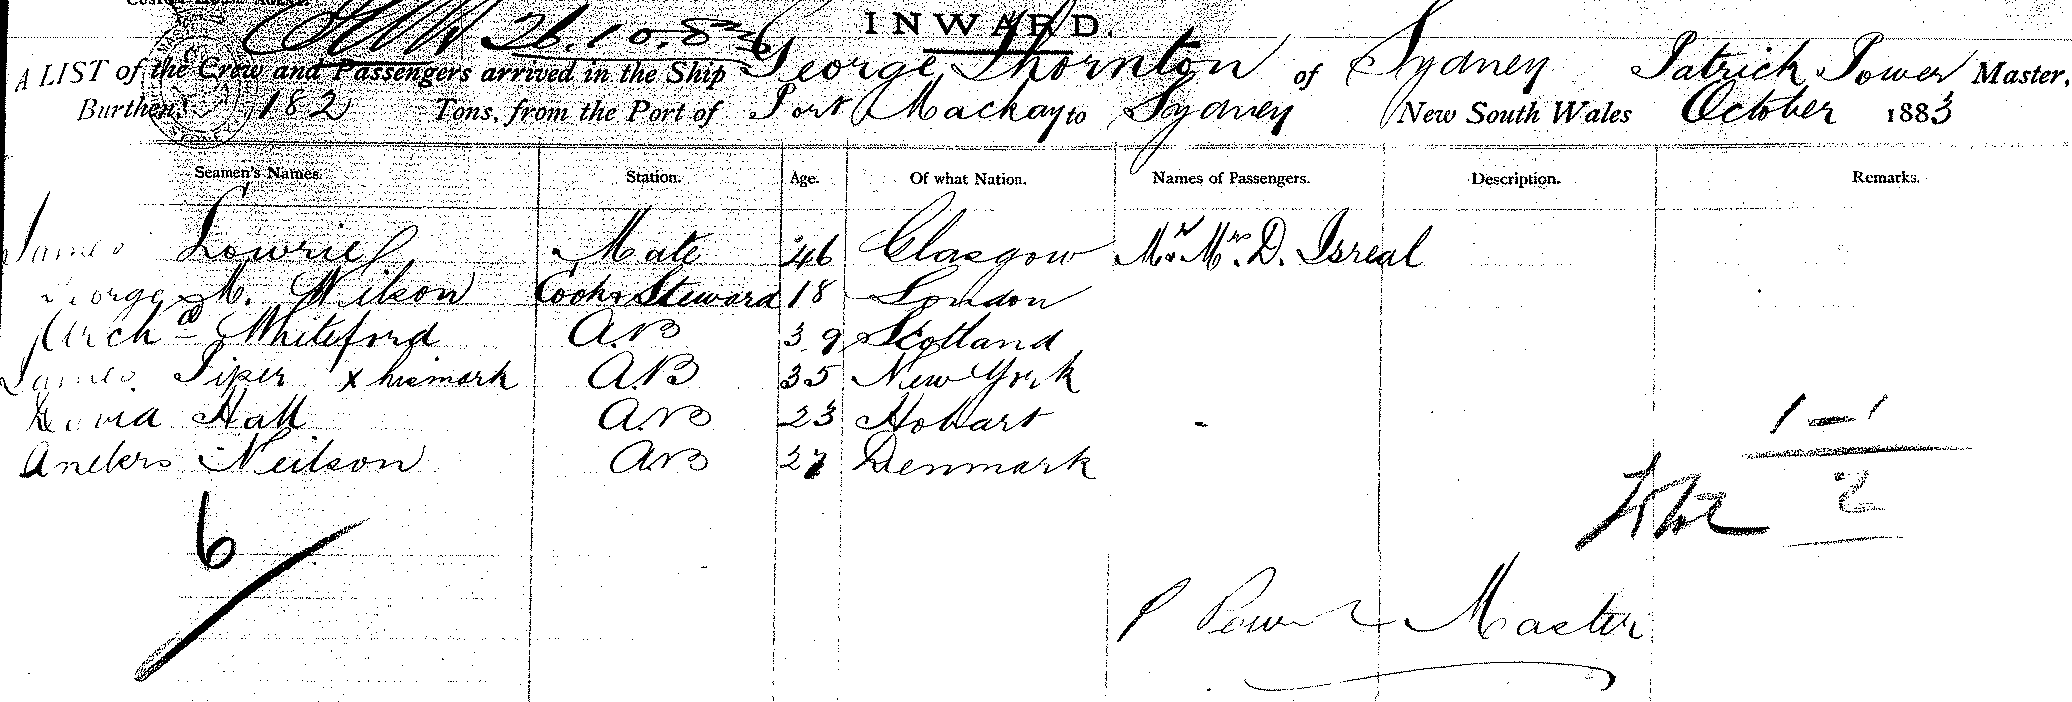 INWARD.
26.10.83
A LIST of the Crew and Passengers arrived in the Ship George Thornton of Sydney Patrick Power Master,
Burthen 182 Tons, from the Port of Port Mackay to Sydney New South Wales October 1883
Seamen's Names. Station. Age. Of what Nation. Names of Passengers. Description. Remarks.
James Lowrie Mate 46 Glasgow Mr & Mrs D. Isreal
George M. Wilson Cook & Steward 18 London
Archd Whiteford A.B 39 Scotland
James Piper x his mark A.B 35 New York
David Hall A.B 23 Hobart
Anders Neilson A.B 27 Denmark
1 - 1
2
6
P Power Master